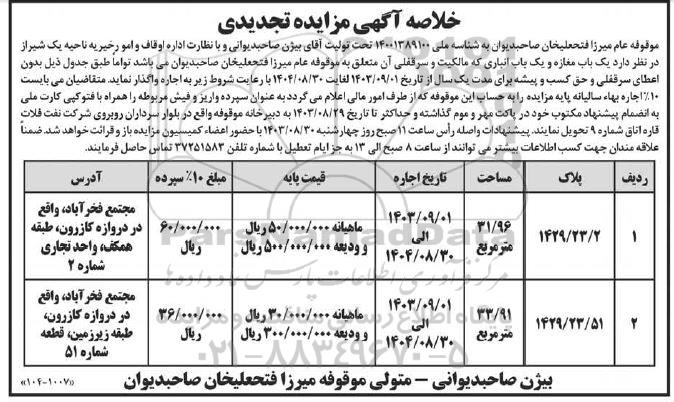 خلاصه آگهی مزایده تجدیدی
موقوفه عام میرزا فتحعلیخان صاحبدیوان به شناسه ملی ۱۴۰۰۱۳۸۹۱۰۰ تحت تولیت آقای بیژن صاحبدیوانی و با نظارت اداره اوقاف و امور خیریه ناحیه یک شیراز
در نظر دارد یک باب مغازه و یک باب انباری که مالکیت و سرقفلی آن متعلق به موقوفه عام میرزا فتحعلیخان صاحبدیوان می باشد تواما طبق جدول ذیل بدون
اعطای سرقفلی و حق کسب و پیشه برای مدت یک سال از تاریخ ۱۴۰۳/۰۹/۰۱ لغایت ۱۴۰۴/۰۸/۳۰ با رعایت شروط زیر به اجاره واگذار نماید. متقاضیان می بایست
۱۰٪ اجاره بهاء سالیانه پایه مزایده را به حساب این موقوفه که از طرف امور مالی اعلام می گردد به عنوان سپرده واریز و فیش مربوطه را همراه با فتوکپی کارت ملی
به انضمام پیشنهاد مکتوب خود در پاکت مهر و موم گذاشته و حداکثر تا تاریخ ۱۴۰۳/۰۸/۲۹ به دبیرخانه موقوفه واقع در بلوار سرداران روبروی شرکت نفت فلات
قاره اتاق شماره ۹ تحویل نمایند. پیشنهادات واصله رأس ساعت ۱۱ صبح روز چهارشنبه ۱۴۰۳/۰۸/۳۰ با حضور اعضاء کمیسیون مزایده باز و قرائت خواهد شد. ضمناً
علاقه مندان جهت کسب اطلاعات بیشتر می توانند از ساعت ۸ صبح الی ۱۳ به جز ایام تعطیل با شماره تلفن ۳۷۲۵۱۵۸۳ تماس حاصل فرمایند.
ردیف پلاک مساحت تاریخ اجاره قیمت پایه مبلغ ۱۰٪ سپرده آدرس
۱ ۱۴۲۹/۲۳/۲ ۳۱/۹۶ مترمربع ۱۴۰۳/۰۹/۰۱ الی ۱۴۰۴/۰۸/۳۰ ماهیانه ۵۰/۰۰۰/۰۰۰ ریال و ودیعه ۵۰۰/۰۰۰/۰۰۰ ریال ۶۰/۰۰۰/۰۰۰ ریال مجتمع فخرآباد، واقع در دروازه کازرون، طبقه همکف، واحد تجاری شماره ۲
۲ ۱۴۲۹/۲۳/۵۱ ۳۳/۹۱ مترمربع ۱۴۰۳/۰۹/۰۱ الی ۱۴۰۴/۰۸/۳۰ ماهیانه ۳۰/۰۰۰/۰۰۰ ریال و ودیعه ۳۰۰/۰۰۰/۰۰۰ ریال ۳۶/۰۰۰/۰۰۰ ریال مجتمع فخرآباد، واقع در دروازه کازرون، طبقه زیرزمین، قطعه شماره ۵۱
بیژن صاحبدیوانی – متولی موقوفه میرزا فتحعلیخان صاحبدیوان
«۱۰۴-۱۰۰۷»
ParsNamadData
مرکز فرآوری اطلاعات پارس نماد داده ها
۰۲۱-۸۸۳۴۹۶۷۰-۵